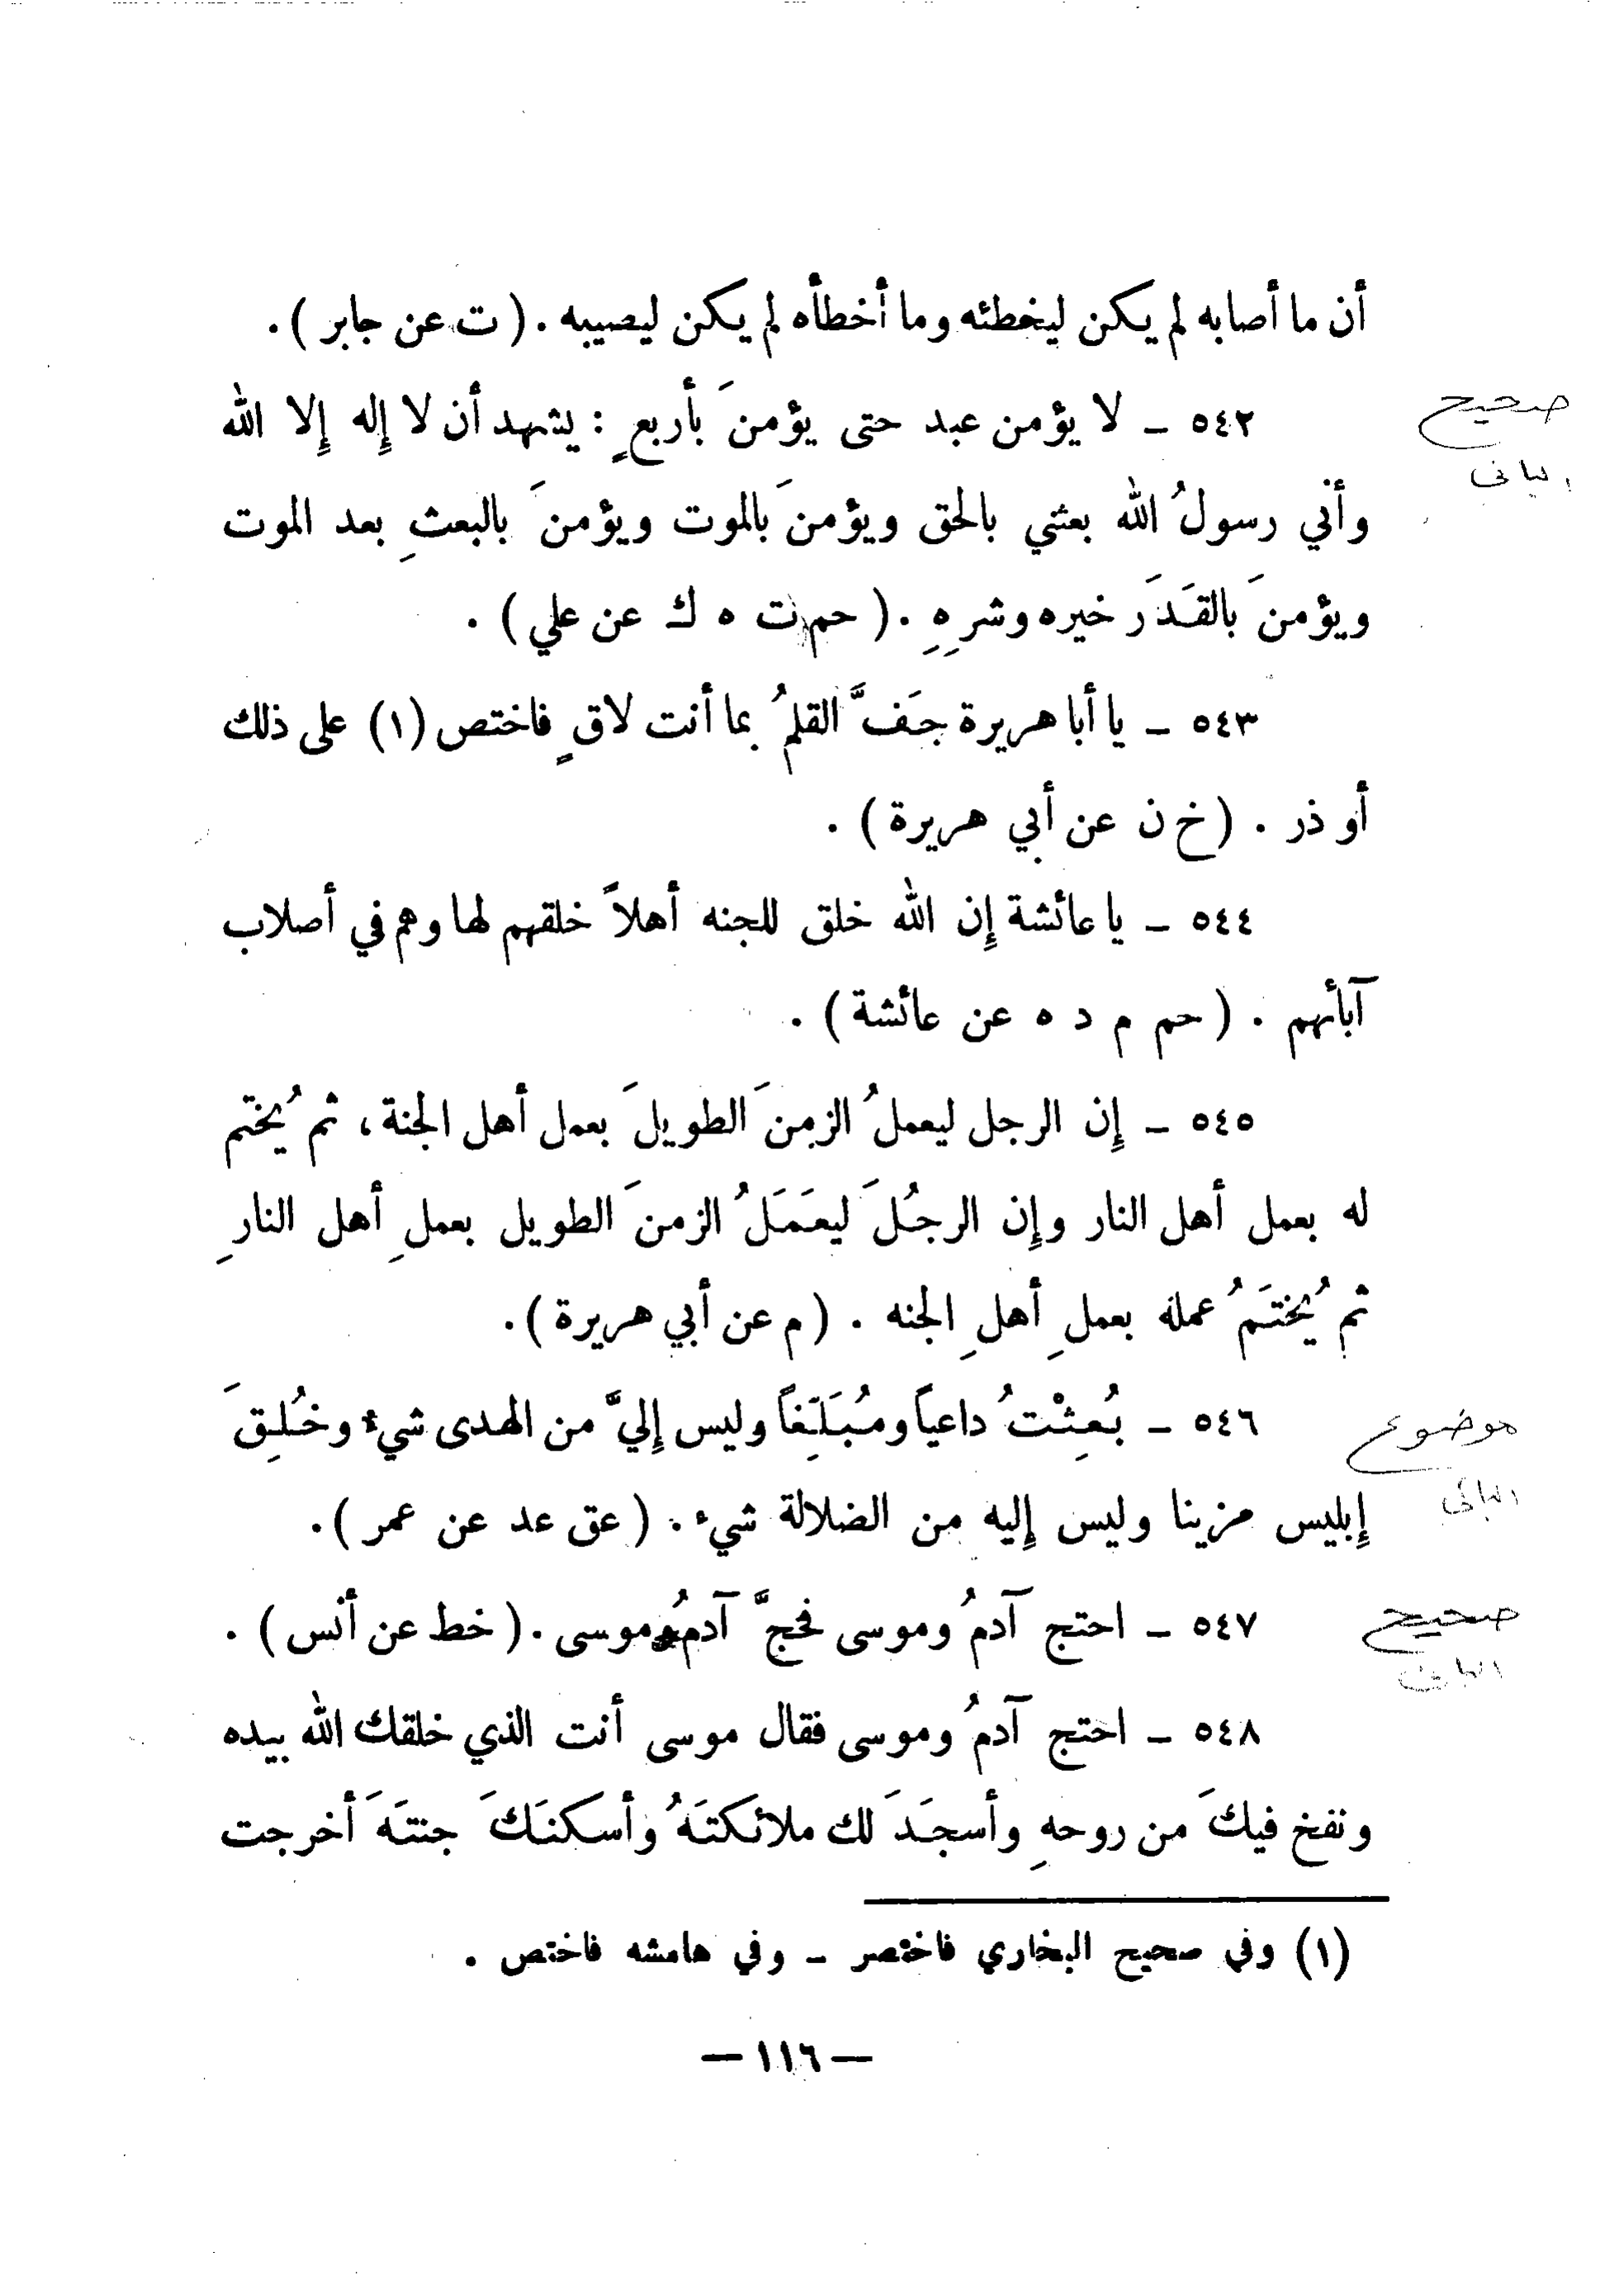 أن ما أصابه لم يكن ليخطئه وما أخطأه لم يكن ليصيبه . ( ت عن جابر ) .
٥٤٢ – لا يؤمن عبد حتى يؤمنَ بأربعٍ : يشهد أن لا إله إلا الله
صحيح
البانى
وأني رسولُ الله بعثني بالحق ويؤمنَ بالموت ويؤمنَ بالبعثِ بعد الموت
ويؤمنَ بالقَدَر خيره وشرِهِ . ( حم ت ه ك عن علي ) .
٥٤٣ – يا أبا هريرة جَفَّ القلمُ بما أنت لاقٍ فاختص (١) على ذلك
أو ذر . ( خ ن عن أبي هريرة ) .
٥٤٤ – يا عائشة إن الله خلق للجنه أهلاً خلقهم لها وهم في أصلاب
آبأئهم . ( حم م د ه عن عائشة ) .
٥٤٥ – إن الرجل ليعملُ الزمنَ الطويلَ بعمل أهل الجنة ، ثم يُختم
له بعمل أهل النار وإن الرجُلَ ليعَمَلُ الزمنَ الطويل بعملِ أهل النارِ
ثم يُختَمُ عمله بعملِ أهلِ الجنه . ( م عن أبي هريرة ) .
٥٤٦ – بُعِثْتُ داعياً ومُبَلِّغاً وليس إليَّ من الهدى شيء وخُلِقَ
موضوع
البانى
إبليس مزينا وليس إليه من الضلالة شيء . ( عق عد عن عمر ) .
٥٤٧ – احتج آدمُ وموسى فحجَّ آدمُ موسى . ( خط عن أنس ) .
صحيح
البانى
٥٤٨ – احتج آدمُ وموسى فقال موسى أنت الذي خلقك الله بيده
ونفخ فيكَ من روحهِ وأسجَدَ لك ملائكتَهُ وأسكنَكَ جنتَهَ أخرجت
(١) وفي صحيح البخاري فاختصر – وفي هامشه فاختص .
– ١١٦ –